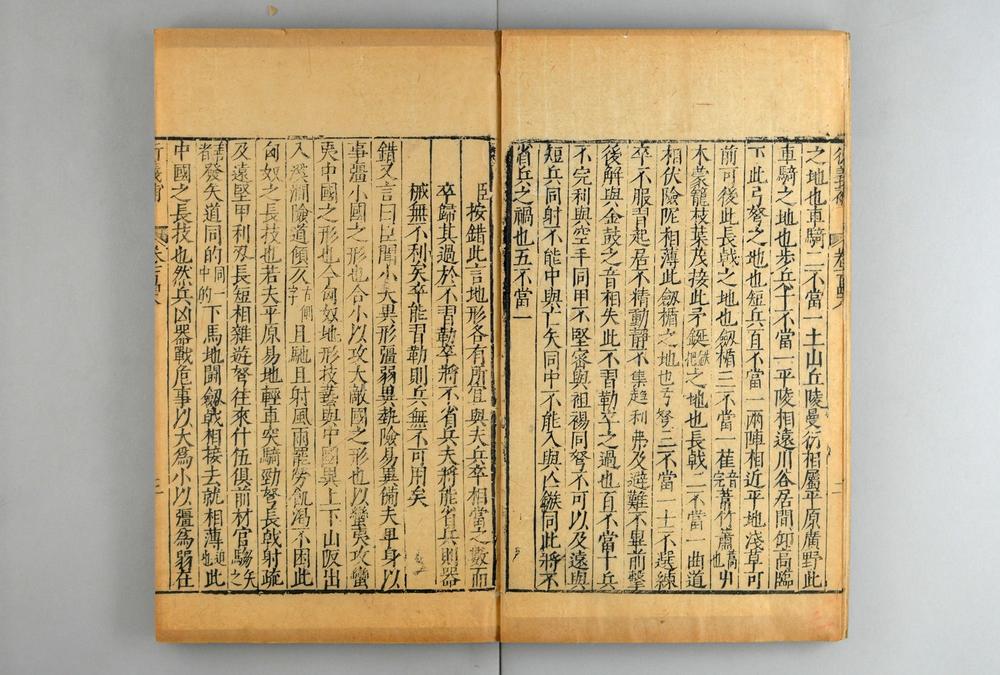 之地也車騎二不當一土山丘陵曼衍相屬平原廣野此
車騎之地也步兵十不當一平陵相遠川谷居間仰高臨
下此弓弩之地也短兵百不當一兩陣相近平地淺草可
前可後此長戟之地也劔楯三不當一萑音完葦竹蕭蒿也屮
木蒙籠枝葉茂接此矛鋋鐵把之地也長戟二不當一曲道
相伏險阨相薄此劔楯之地也弓弩三不當一士不選練
卒不服習起居不精動靜不集趨利弗及避難不畢前擊
後解與金鼓之音相失此不習勒卒之過也百不當十兵
不完利與空手同甲不堅密與袒裼同弩不可以及遠與
短兵同射不能中與亡矢同中不能入與亡鏃同此將不
省兵之禍也五不當一
臣按錯此言地形各有所宜與夫兵卒相當之數而
卒歸其過於不習勒卒將不省兵夫將能省兵則器
械無不利矣卒能習勒則兵無不可用矣
錯又言曰臣聞小大異形彊弱異埶險易異備夫卑身以
事彊小國之形也合小以攻大敵國之形也以蠻夷攻蠻
夷中國之形也今匈奴地形技藝與中國異上下山阪出
入溪澗險道傾仄古側字且馳且射風雨罷勞飢渴不困此
匈奴之長技也若夫平原易地輕車突騎勁弩長戟射疏
及遠堅甲利刃長短相雜遊弩往來什伍俱前材官騶矢之
善者發矢道同的同一中的下馬地鬭劔戟相接去就相薄迫也此
中國之長技也然兵凶器戰危事以大為小以彊為弱在